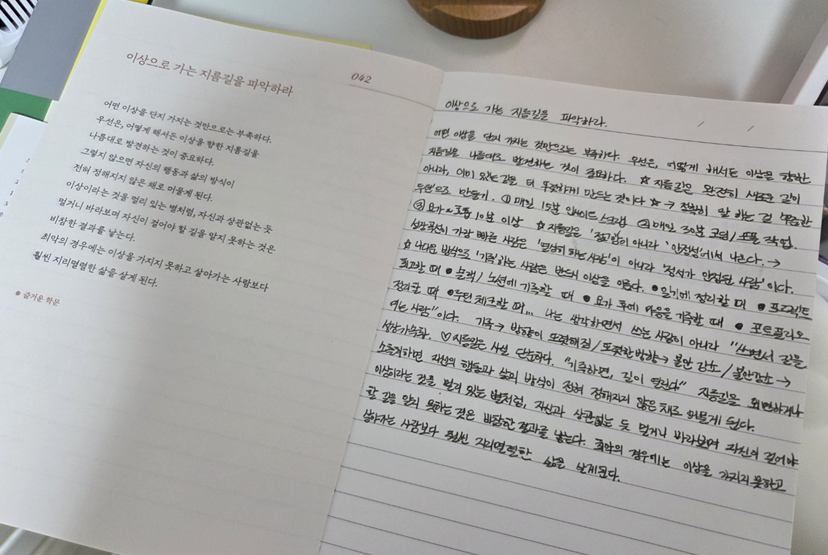 이상으로 가는 지름길을 파악하라
042
어떤 이상을 단지 가지는 것만으로는 부족하다.
우선은, 어떻게 해서든 이상을 향한 지름길을
나름대로 발견하는 것이 중요하다.
그렇지 않으면 자신의 행동과 삶의 방식이
전혀 정해지지 않은 채로 머물게 된다.
이상이라는 것을 멀리 있는 별처럼, 자신과 상관없는 듯
멀거니 바라보며 자신이 걸어야 할 길을 알지 못하는 것은
비참한 결과를 낳는다.
최악의 경우에는 이상을 가지지 못하고 살아가는 사람보다
훨씬 지리멸렬한 삶을 살게 된다.
즐거운 학문
이상으로 가는 지름길을 파악하라.
어떤 이상을 단지 가지는 것만으로는 부족하다. 우선은, 어떻게 해서든 이상을 향한
지름길을 나름대로 발견하는 것이 중요하다. ☆ 지름길은 완전히 새로운 길이
아니라, 이미 있는 길을 더 뚜렷하게 만드는 것이다 ☆ → 조용히 잘 하는 걸 꾸준한
루틴으로 만들기. ① 매일 15분 인사이트 스크랩 ② 매일 30분 코딩/ 작업
③ 요가 10분 이상 ☆ 지름길은 '정교함이 아니라 '안정성'에서 나온다. →
성장곡선이 가장 빠른 사람은 '열심히 하는 사람'이 아니라 '정서가 안정된 사람'이다.
☆ 나다운 방식으로 '기록'하는 사람은 반드시 이상을 이룬다. ● 일기에 정리할 때 ● 프로젝트
회고할 때 ● 블로그/노션에 기록할 때 ● 요가 후에 마음을 기록할 때 ● 포트폴리오
정리할 때 ● 루틴 체크할 때... 나는 생각하면서 쓰는 사람이 아니라 "쓰면서 길을
여는 사람"이다. 기록 → 방향이 또렷해짐/또렷한 방향 → 불안 감소/불안감소 →
성장가속화. ♡ 지름길은 사실 단순하다. "기록하면, 길이 열린다" 지름길을 외면하거나
소홀히하면 자신의 행동과 삶의 방식이 전혀 정해지지 않은 채로 머물게 된다.
이상이라는 것을 멀리 있는 별처럼, 자신과 상관없는 듯 멀거니 바라보며 자신이 걸어야
할 길을 알지 못하는 것은 비참한 결과를 낳는다. 최악의 경우에는 이상을 가지지 못하고
살아가는 사람보다 훨씬 지리멸렬한 삶을 살게된다.